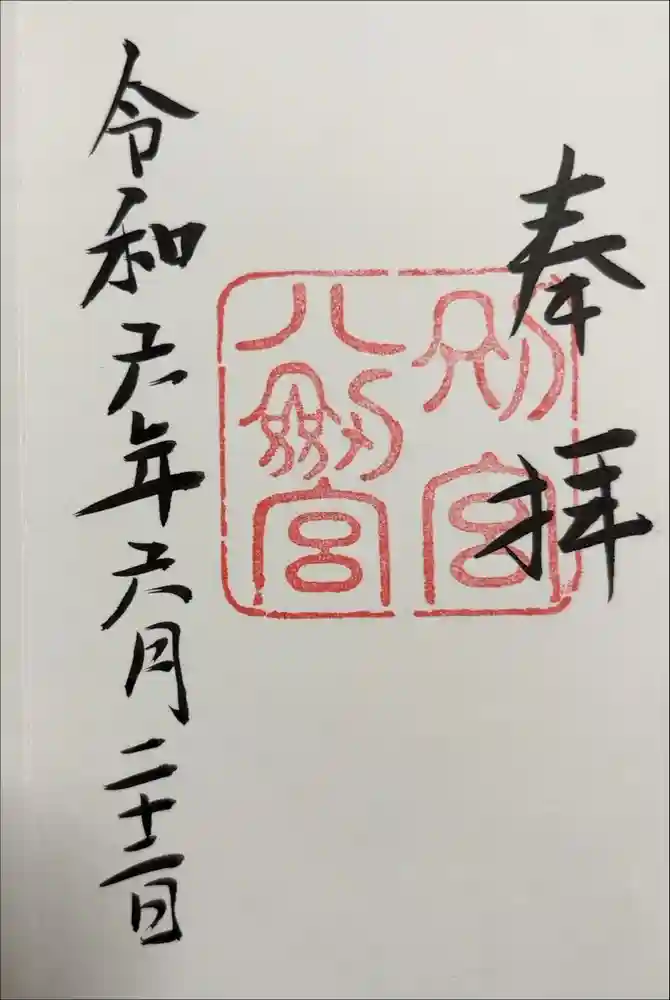 奉拝
別宮
八剱宮
令和六年六月二十二日